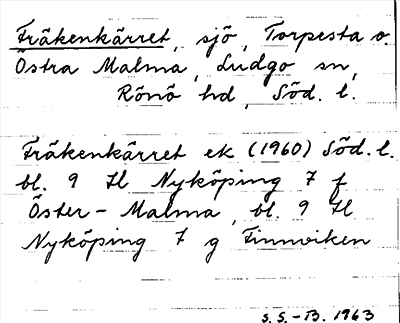 Fräkenkärret, sjö, Torpesta o.
Östra Malma, Ludgo sn,
Rönö hd, Söd. l.
Fräkenkärret ek (1960) Söd. l.
bl. 9 Hl Nyköping 7 f
Öster-Malma, bl. 9 Hl
Nyköping 7 g Finnviken
S.S.-B. 1963